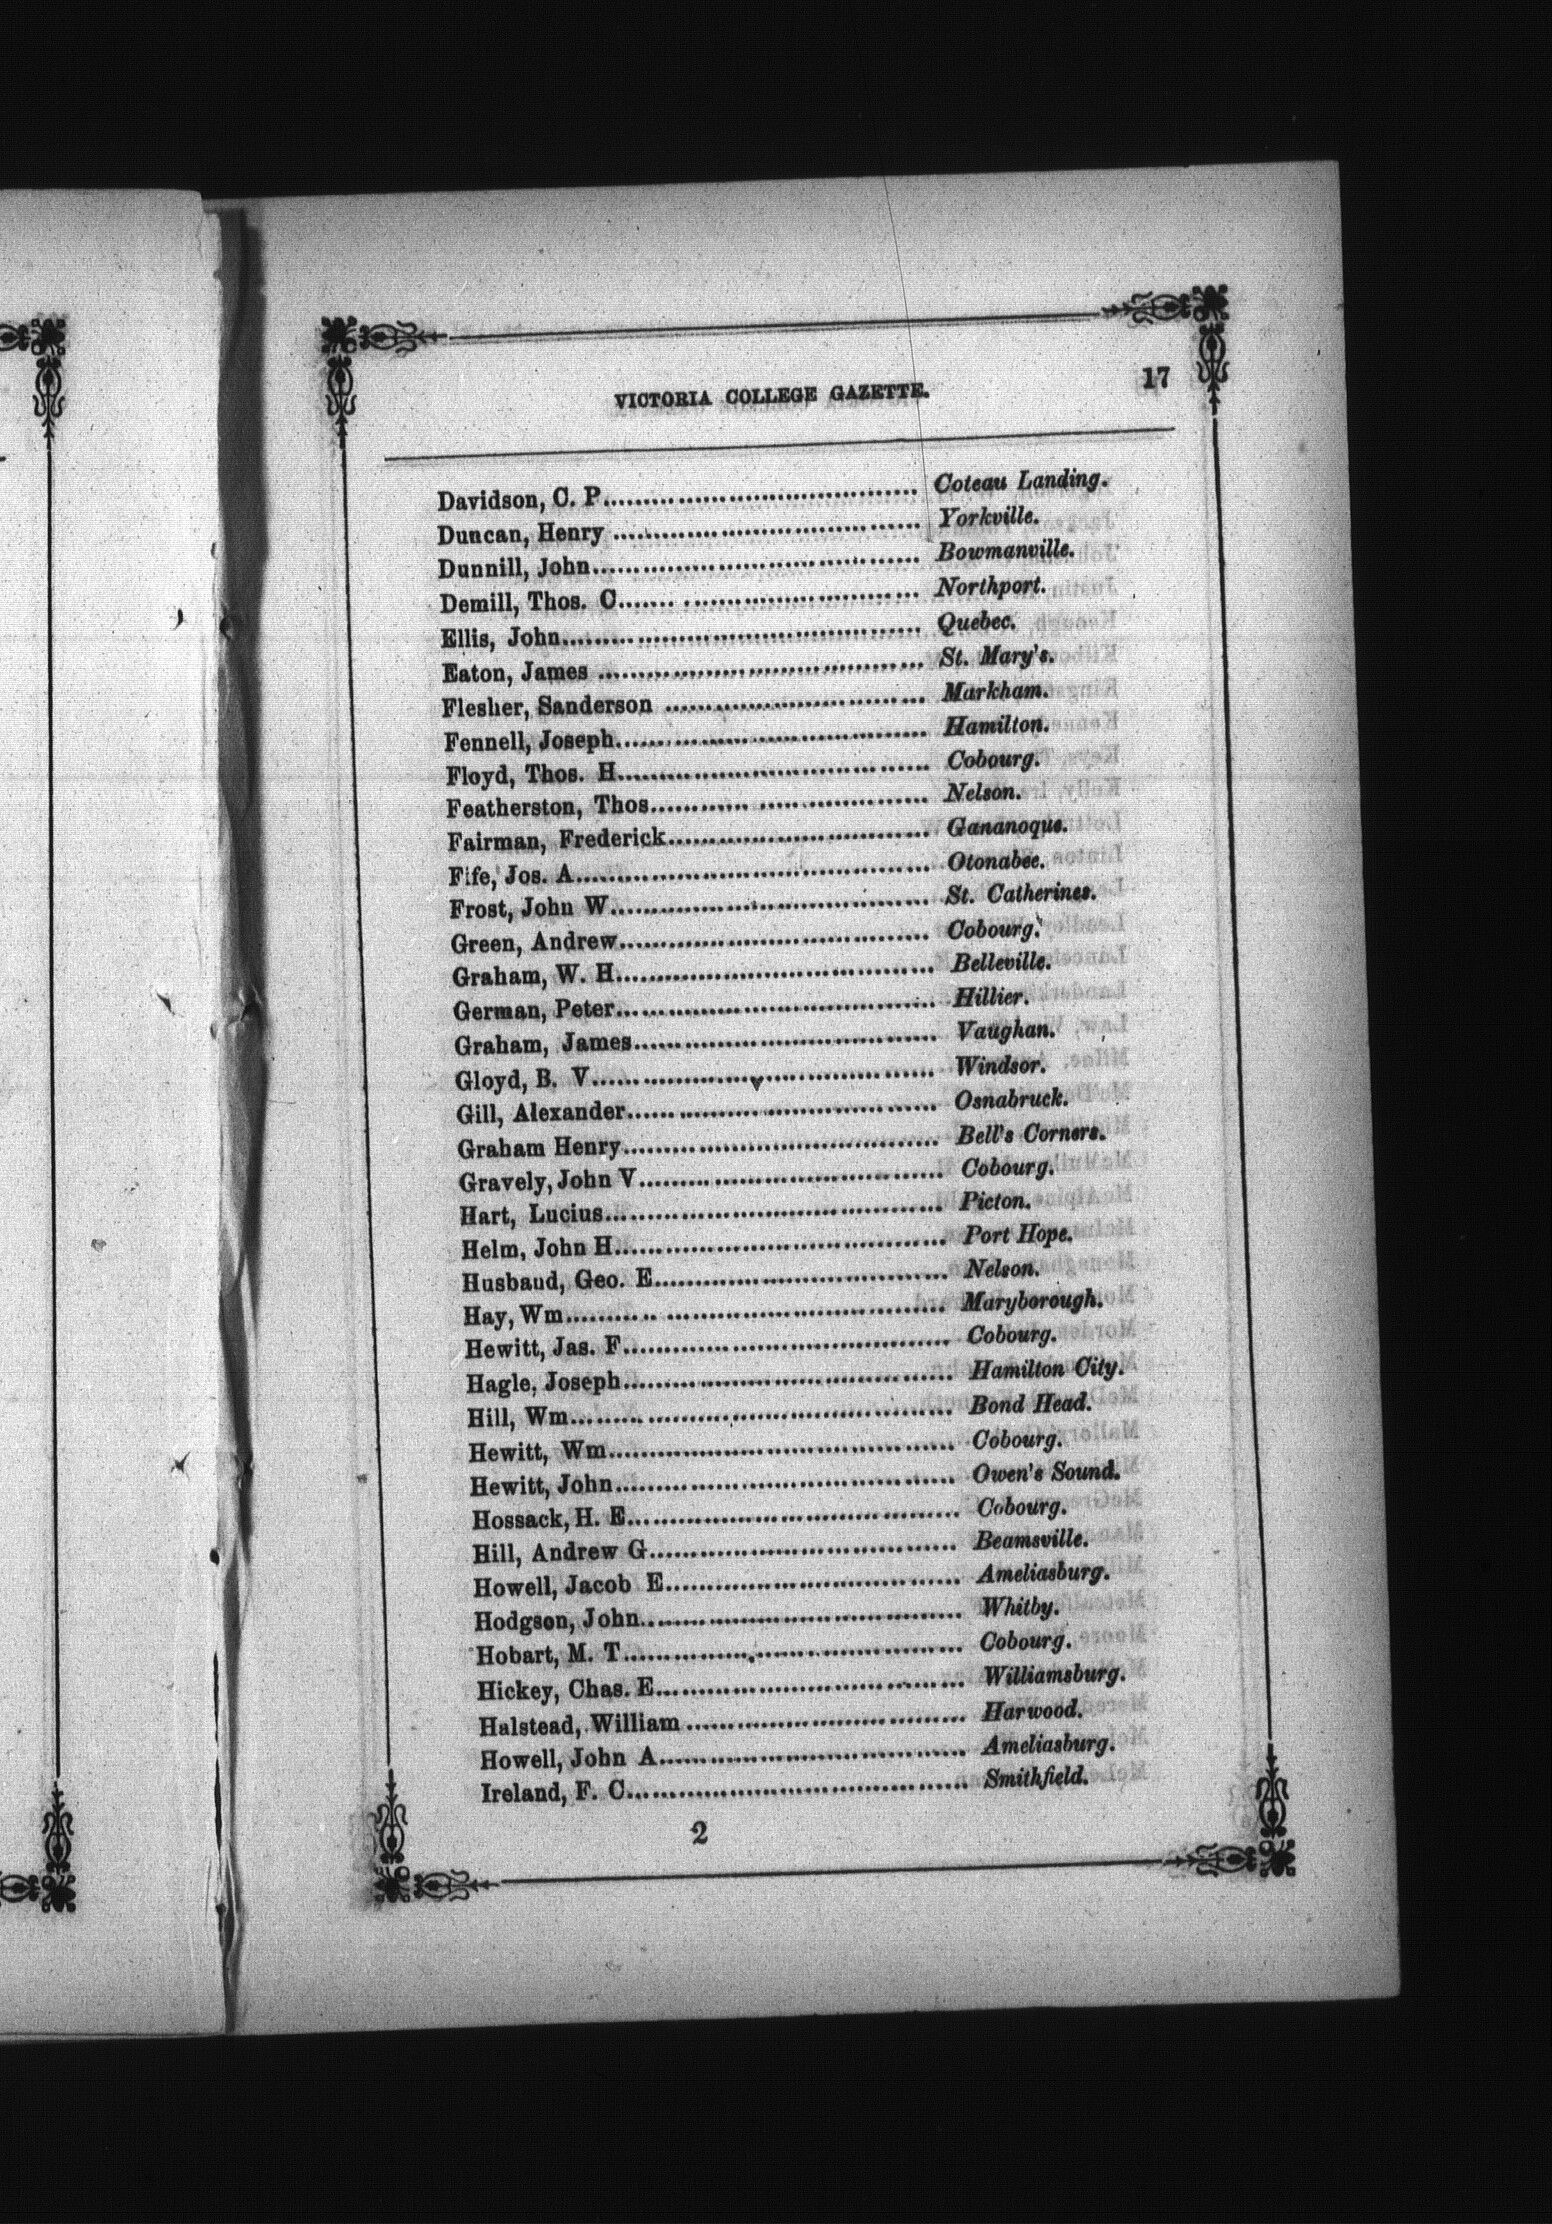 VICTORIA COLLEGE GAZETTE. 17
Davidson, C. P. Coteau Landing.
Duncan, Henry Yorkville.
Dunnill, John Bowmanville.
Demill, Thos. C. Northport.
Ellis, John Quebec.
Eaton, James St. Mary's.
Flesher, Sanderson Markham.
Fennell, Joseph Hamilton.
Floyd, Thos. H. Cobourg.
Featherston, Thos. Nelson.
Fairman, Frederick Gananoque.
Fife, Jos. A. Otonabee.
Frost, John W. St. Catherines.
Green, Andrew Cobourg.
Graham, W. H. Belleville.
German, Peter Hillier.
Graham, James Vaughan.
Gloyd, B. V. Windsor.
Gill, Alexander Osnabruck.
Graham Henry Bell's Corners.
Gravely, John V. Cobourg.
Hart, Lucius Picton.
Helm, John H. Port Hope.
Husband, Geo. E. Nelson.
Hay, Wm. Maryborough.
Hewitt, Jas. F. Cobourg.
Hagle, Joseph Hamilton City.
Hill, Wm. Bond Head.
Hewitt, Wm. Cobourg.
Hewitt, John Owen's Sound.
Hossack, H. E. Cobourg.
Hill, Andrew G. Beamsville.
Howell, Jacob E. Ameliasburg.
Hodgson, John Whitby.
Hobart, M. T. Cobourg.
Hickey, Chas. E. Williamsburg.
Halstead, William Harwood.
Howell, John A. Ameliasburg.
Ireland, F. C. Smithfield.
2